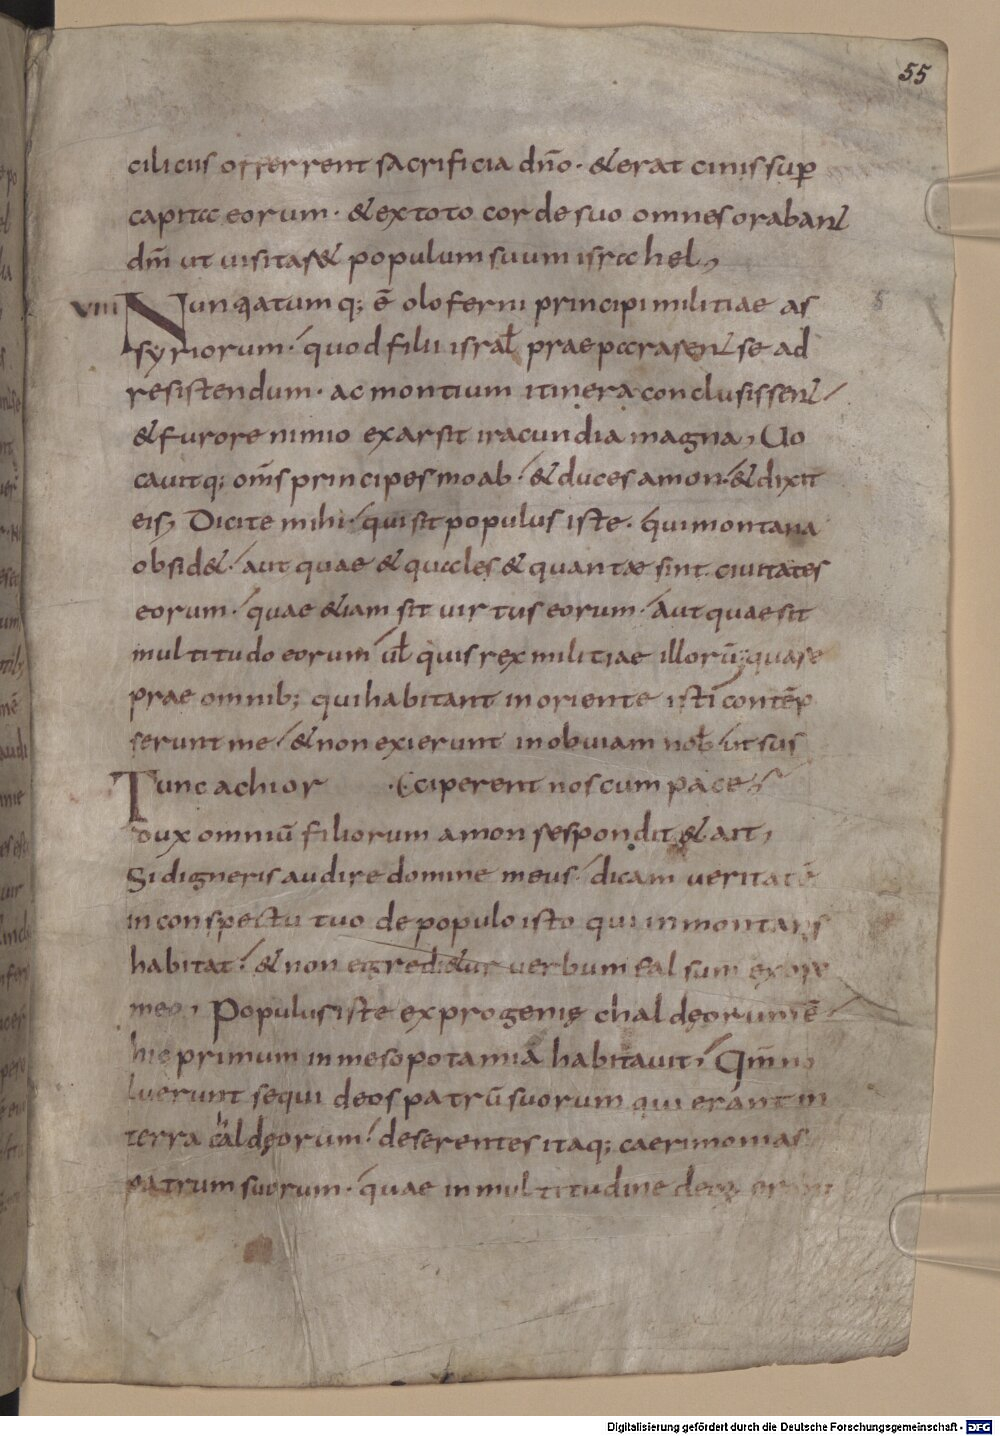 55
ciliciis offerrent sacrificia dn̄o · & erat cinis sup̄
capita eorum · & ex toto corde suo omnes oraban&
dm̄ ut uisitas& populum suum israhel,
VIII Nunciatumq; ē oloferni principi militiae as
syriorum · quod filii israł praeparasen& se ad
resistendum · ac montium itinera conclusissen&
& furore nimio exarsit iracundia magna, Uo
cauitq; om̄s principes moab & duces amon · & dixit
eis, Dicite mihi · qui sit populus iste · qui montana
obsid& · aut quae & quales & quantae sint ciuitates
eorum · quae &iam sit uirtus eorum · aut quae sit
multitudo eorum ul̄ quis rex militiae illorū; quare
prae omnib; qui habitant in oriente isti contēp
serunt me · & non exierunt in obuiam nob̄ ut sus
Tunc achior · ciperent nos cum pace
dux omniū filiorum amon respondit & ait,
Si digneris audire domine meus · dicam ueritatē
in conspectu tuo de populo isto qui in montanis
habitat · & non egredi&ur uerbum falsum ex ore
meo, Populus iste ex progenie chaldęorum ē
hic primum in mesopotamia habitauit, Qm̄ no
luerunt sequi deos patrū suorum qui erant in
terra caldęorum · deserentes itaq; caerimonias
patrum suorum · quae in multitudine deorū erant
Digitalisierung gefördert durch die Deutsche Forschungsgemeinschaft - DFG